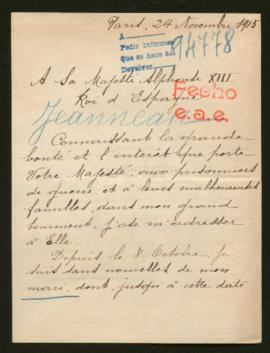 Paris, 24 Novembre 1915
A
Pedir informes
que se hace al
Devolver
94778
A Sa Majesté Alphonse XIII
Roi d'Espagne
Fecho
e.a.e.
Jeannean
Connaissant la grande
bonté et l'intérêt que porte
Votre Majesté, aux prisonniers
de guerre et à leurs malheureuses
familles, dans mon grand
tourment, j'ose m'adresser
à Elle.
Depuis le 8 Octobre, je
suis sans nouvelles de mon
mari, dont jusqu'à cette date